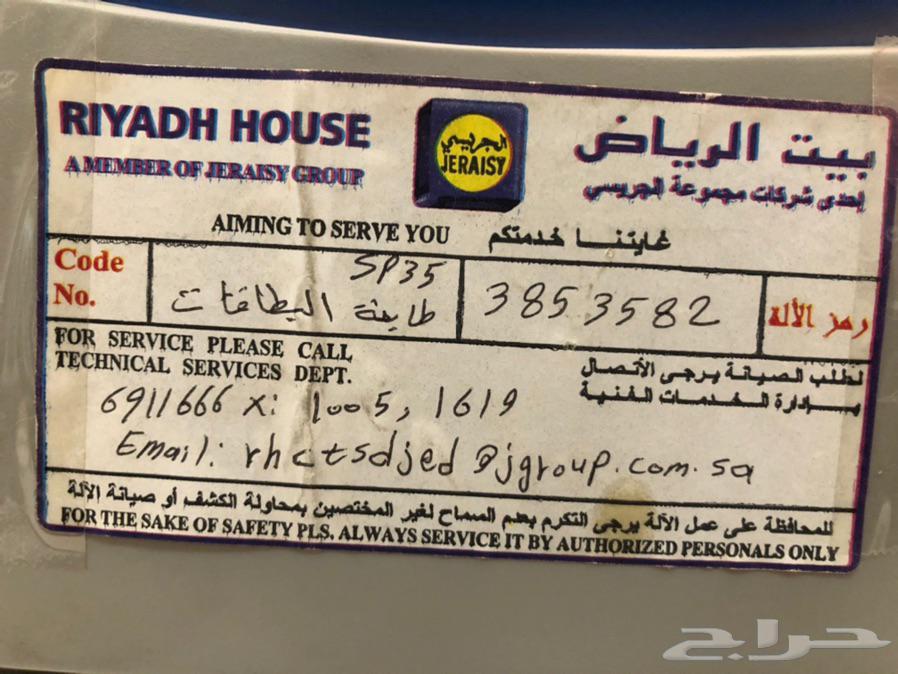 RIYADH HOUSE
بيت الرياض
A MEMBER OF JERAISY GROUP
إحدى شركات مجموعة الجريسي
الجريسي
JERAISY
AIMING TO SERVE YOU
غايتنا خدمتكم
Code No.
SP35
طابعة البطاقات
3853582
رمز الألة
FOR SERVICE PLEASE CALL
TECHNICAL SERVICES DEPT.
لطلب الصيانة يرجى الأتصال
بإدارة الخدمات الفنية
6911666 X: 1005, 1619
Email: rhctsdjed@jgroup.com.sa
للمحافظة على عمل الآلة يرجى التكرم بعدم السماح لغير المختصين بمحاولة الكشف أو صيانة الآلة
FOR THE SAKE OF SAFETY PLS. ALWAYS SERVICE IT BY AUTHORIZED PERSONALS ONLY
حراج